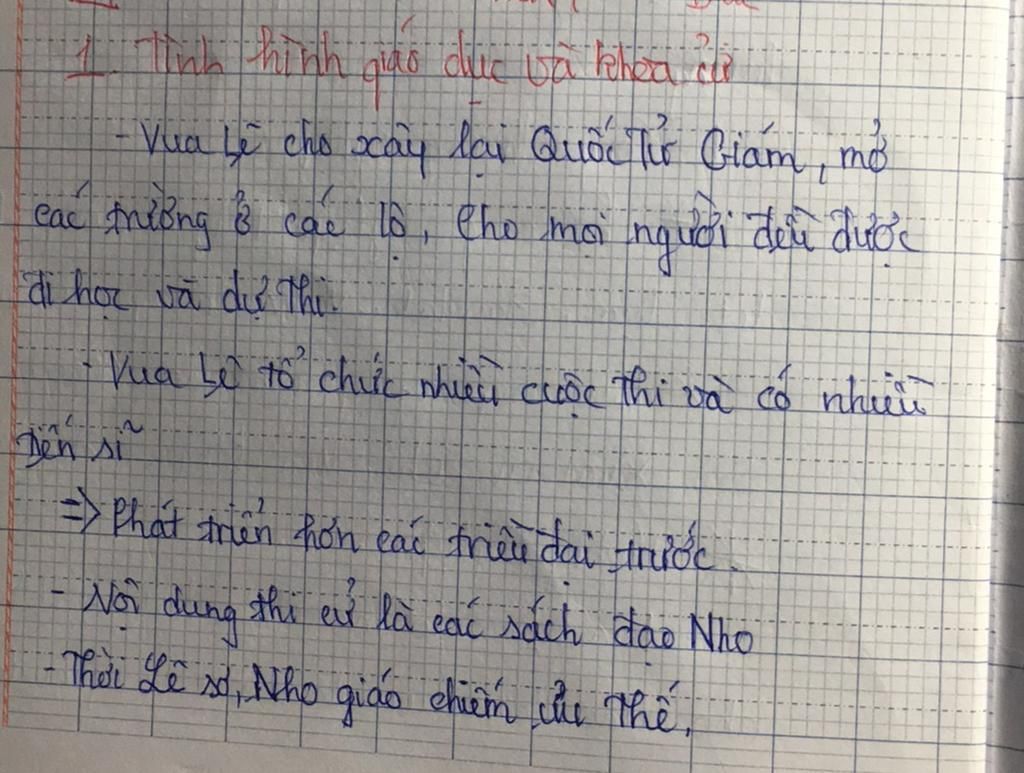 1. Tình hình giáo dục và khoa cử
- Vua Lê cho xây lại Quốc Tử Giám, mở
các trường ở các lộ, cho mọi người đều được
đi học và dự thi.
- Vua Lê tổ chức nhiều cuộc thi và có nhiều
tiến sĩ
=> Phát triển hơn các triều đại trước.
- Nội dung thi cử là các sách đạo Nho
- Thời Lê sơ, Nho giáo chiếm ưu thế.